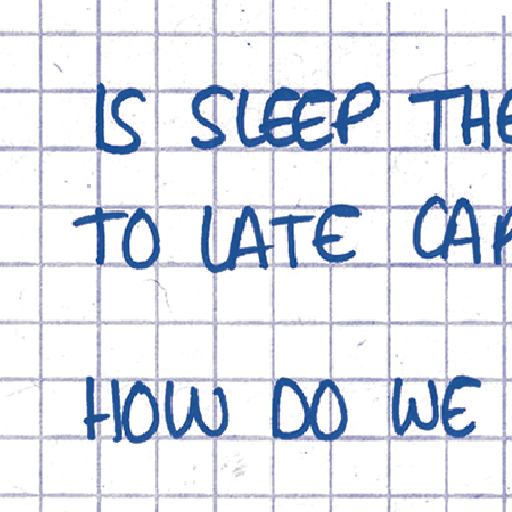 IS SLEEP THE
TO LATE CAP
HOW DO WE